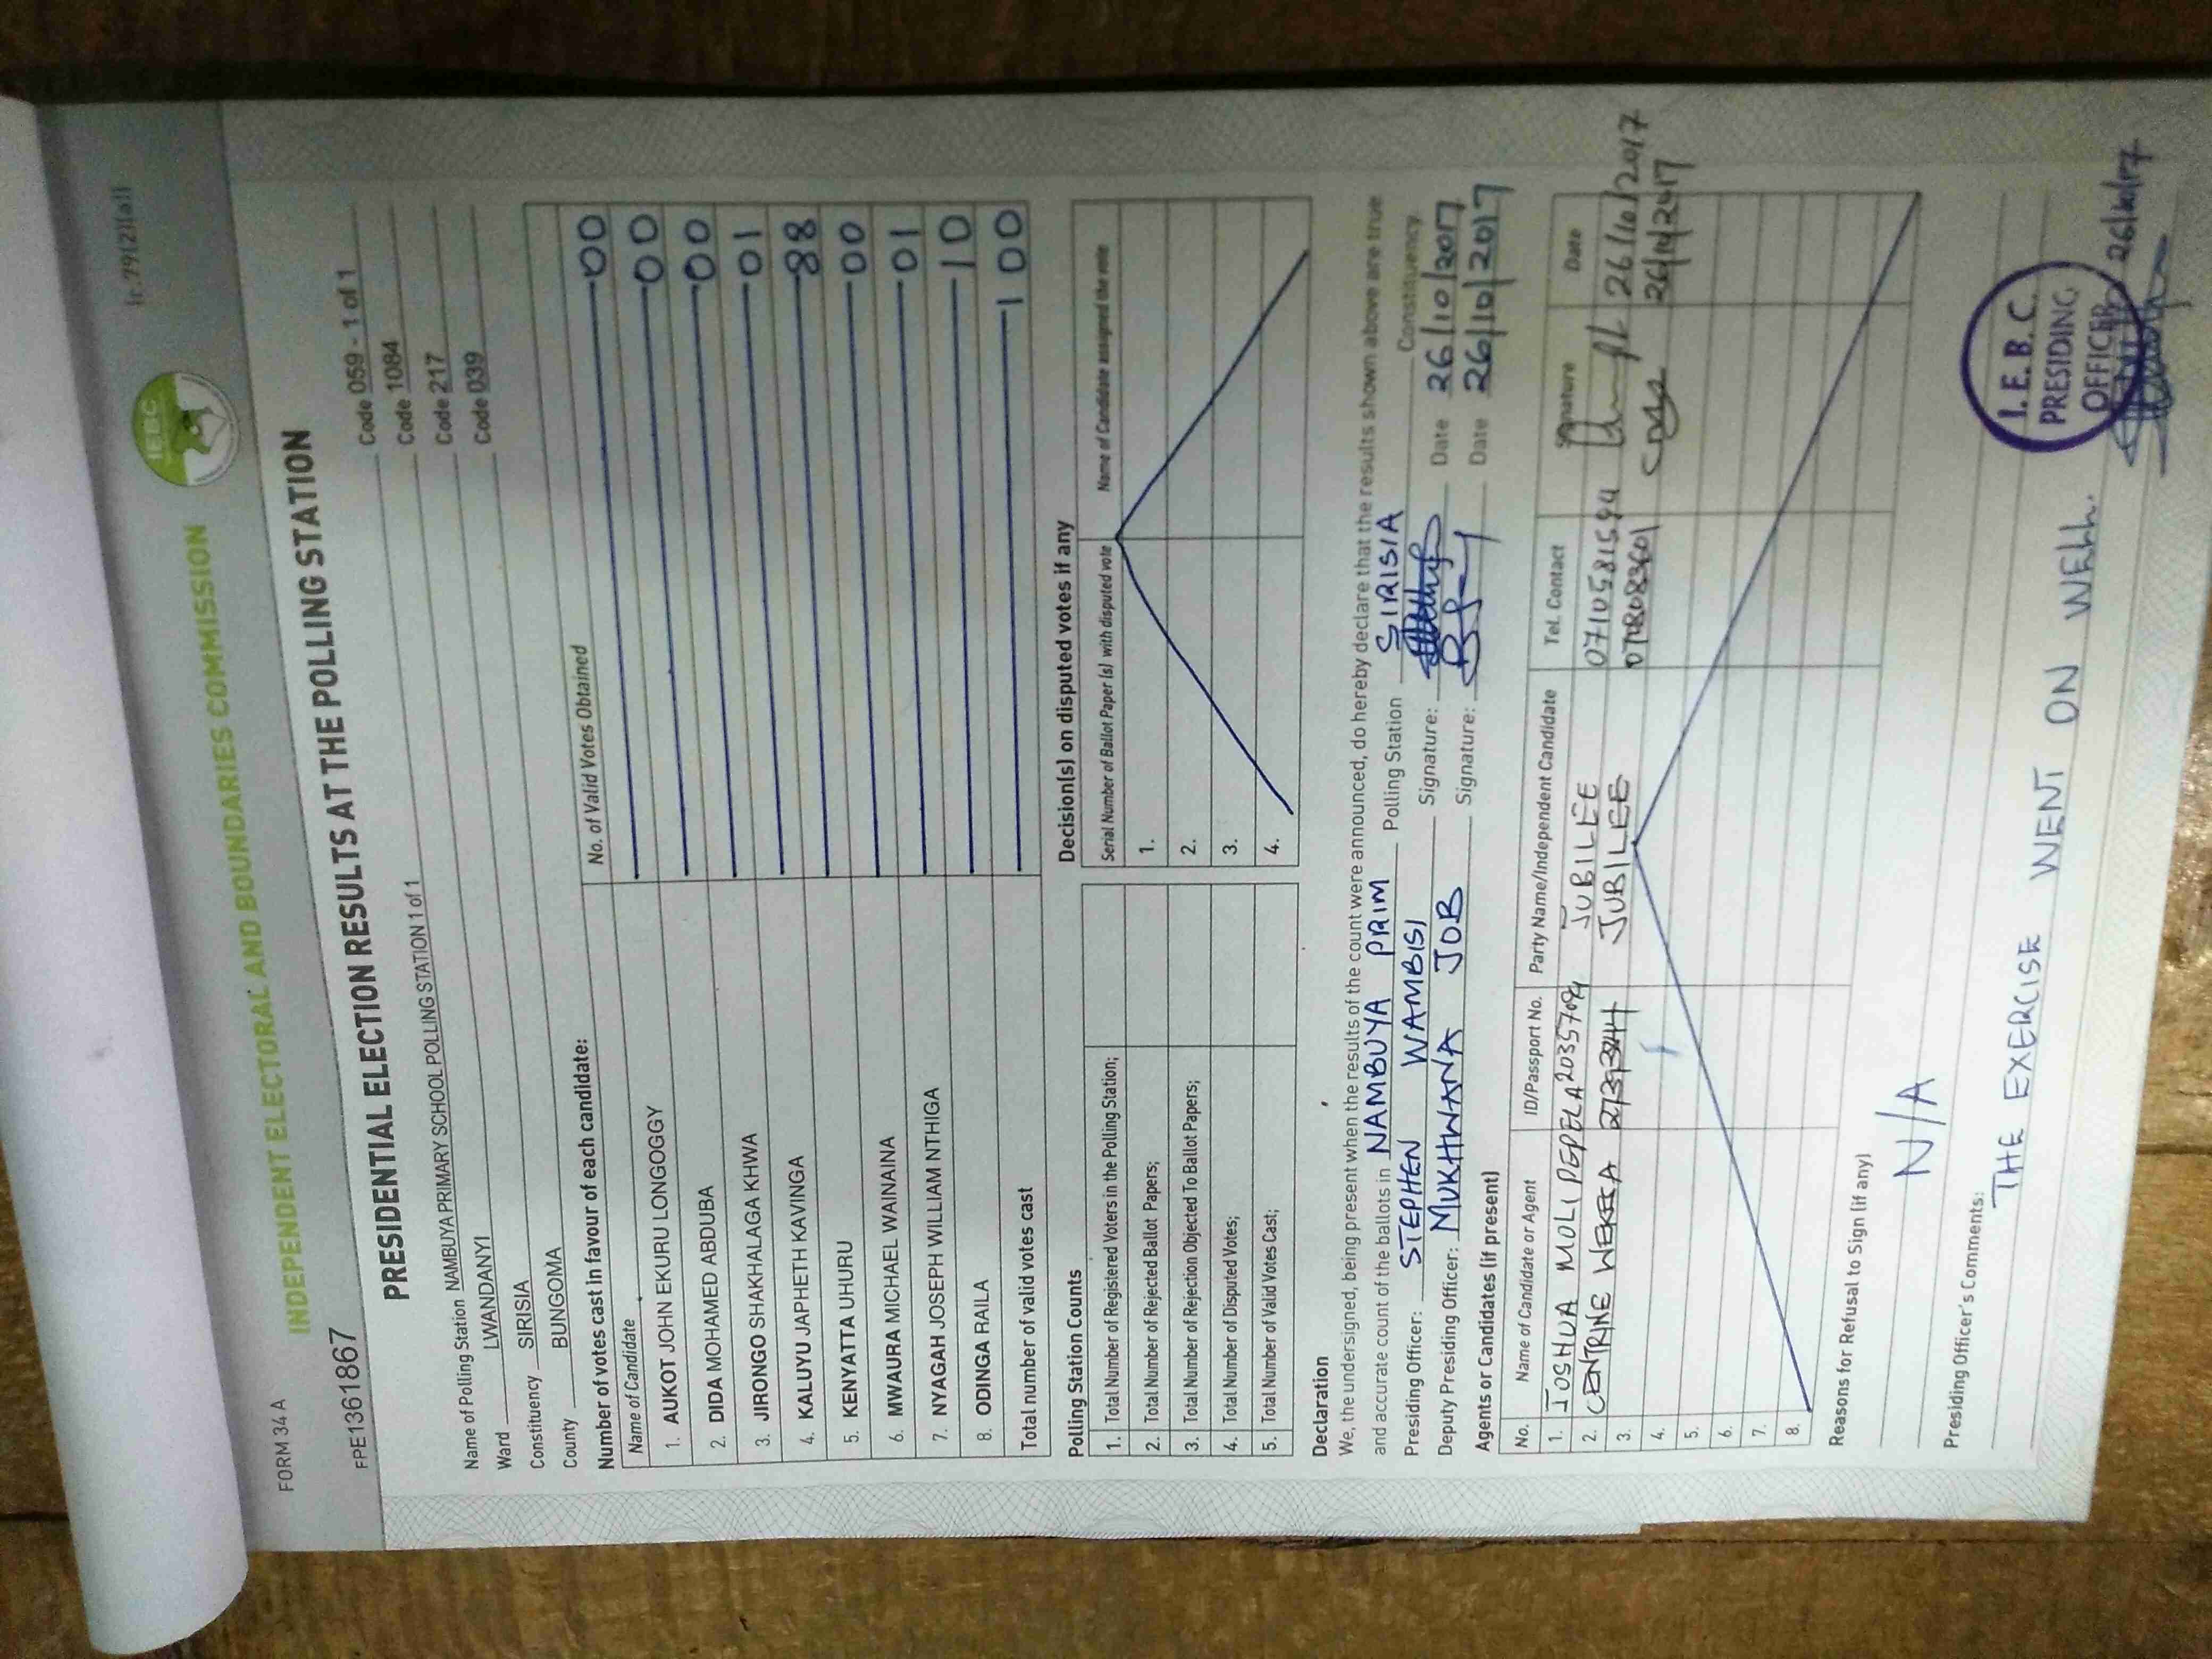 Ir.79(2)(a)]
IEBC
FORM 34 A
INDEPENDENT ELECTORAL AND BOUNDARIES COMMISSION
FPE1361867
PRESIDENTIAL ELECTION RESULTS AT THE POLLING STATION
Name of Polling Station NAMBUYA PRIMARY SCHOOL POLLING STATION 1 of 1 Code 059 - 1 of 1
Ward LWANDANYI Code 1084
Constituency SIRISIA Code 217
County BUNGOMA Code 039
Number of votes cast in favour of each candidate:
Name of Candidate No. of Valid Votes Obtained
1. AUKOT JOHN EKURU LONGOGGY 00
2. DIDA MOHAMED ABDUBA 00
3. JIRONGO SHAKHALAGA KHWA 00
4. KALUYU JAPHETH KAVINGA 01
5. KENYATTA UHURU 88
6. MWAURA MICHAEL WAINAINA 00
7. NYAGAH JOSEPH WILLIAM NTHIGA 01
8. ODINGA RAILA 10
Total number of valid votes cast 100
Polling Station Counts
1. Total Number of Registered Voters in the Polling Station;
2. Total Number of Rejected Ballot Papers;
3. Total Number of Rejection Objected To Ballot Papers;
4. Total Number of Disputed Votes;
5. Total Number of Valid Votes Cast;
Decision(s) on disputed votes if any
Serial Number of Ballot Paper (s) with disputed vote Name of Candidate assigned the vote
1.
2.
3.
4.
Declaration
We, the undersigned, being present when the results of the count were announced, do hereby declare that the results shown above are true
and accurate count of the ballots in NAMBUYA PRIM Polling Station SIRISIA Constituency
Presiding Officer: STEPHEN WAMBISI Signature: Date 26/10/2017
Deputy Presiding Officer: MUKHWANA JOB Signature: Date 26/10/2017
Agents or Candidates (if present)
No. Name of Candidate or Agent ID/Passport No. Party Name/Independent Candidate Tel. Contact Signature Date
1. JOSHUA MOLI PEPELA 20357094 JUBILEE 0710581594 26/10/2017
2. CENTRINE WEKESA JUBILEE 26/10/2017
3.
4.
5.
6.
7.
8.
Reasons for Refusal to Sign (if any)
N/A
Presiding Officer's Comments:
THE EXERCISE WENT ON WELL.
I.E.B.C.
PRESIDING
OFFICER
26/10/17